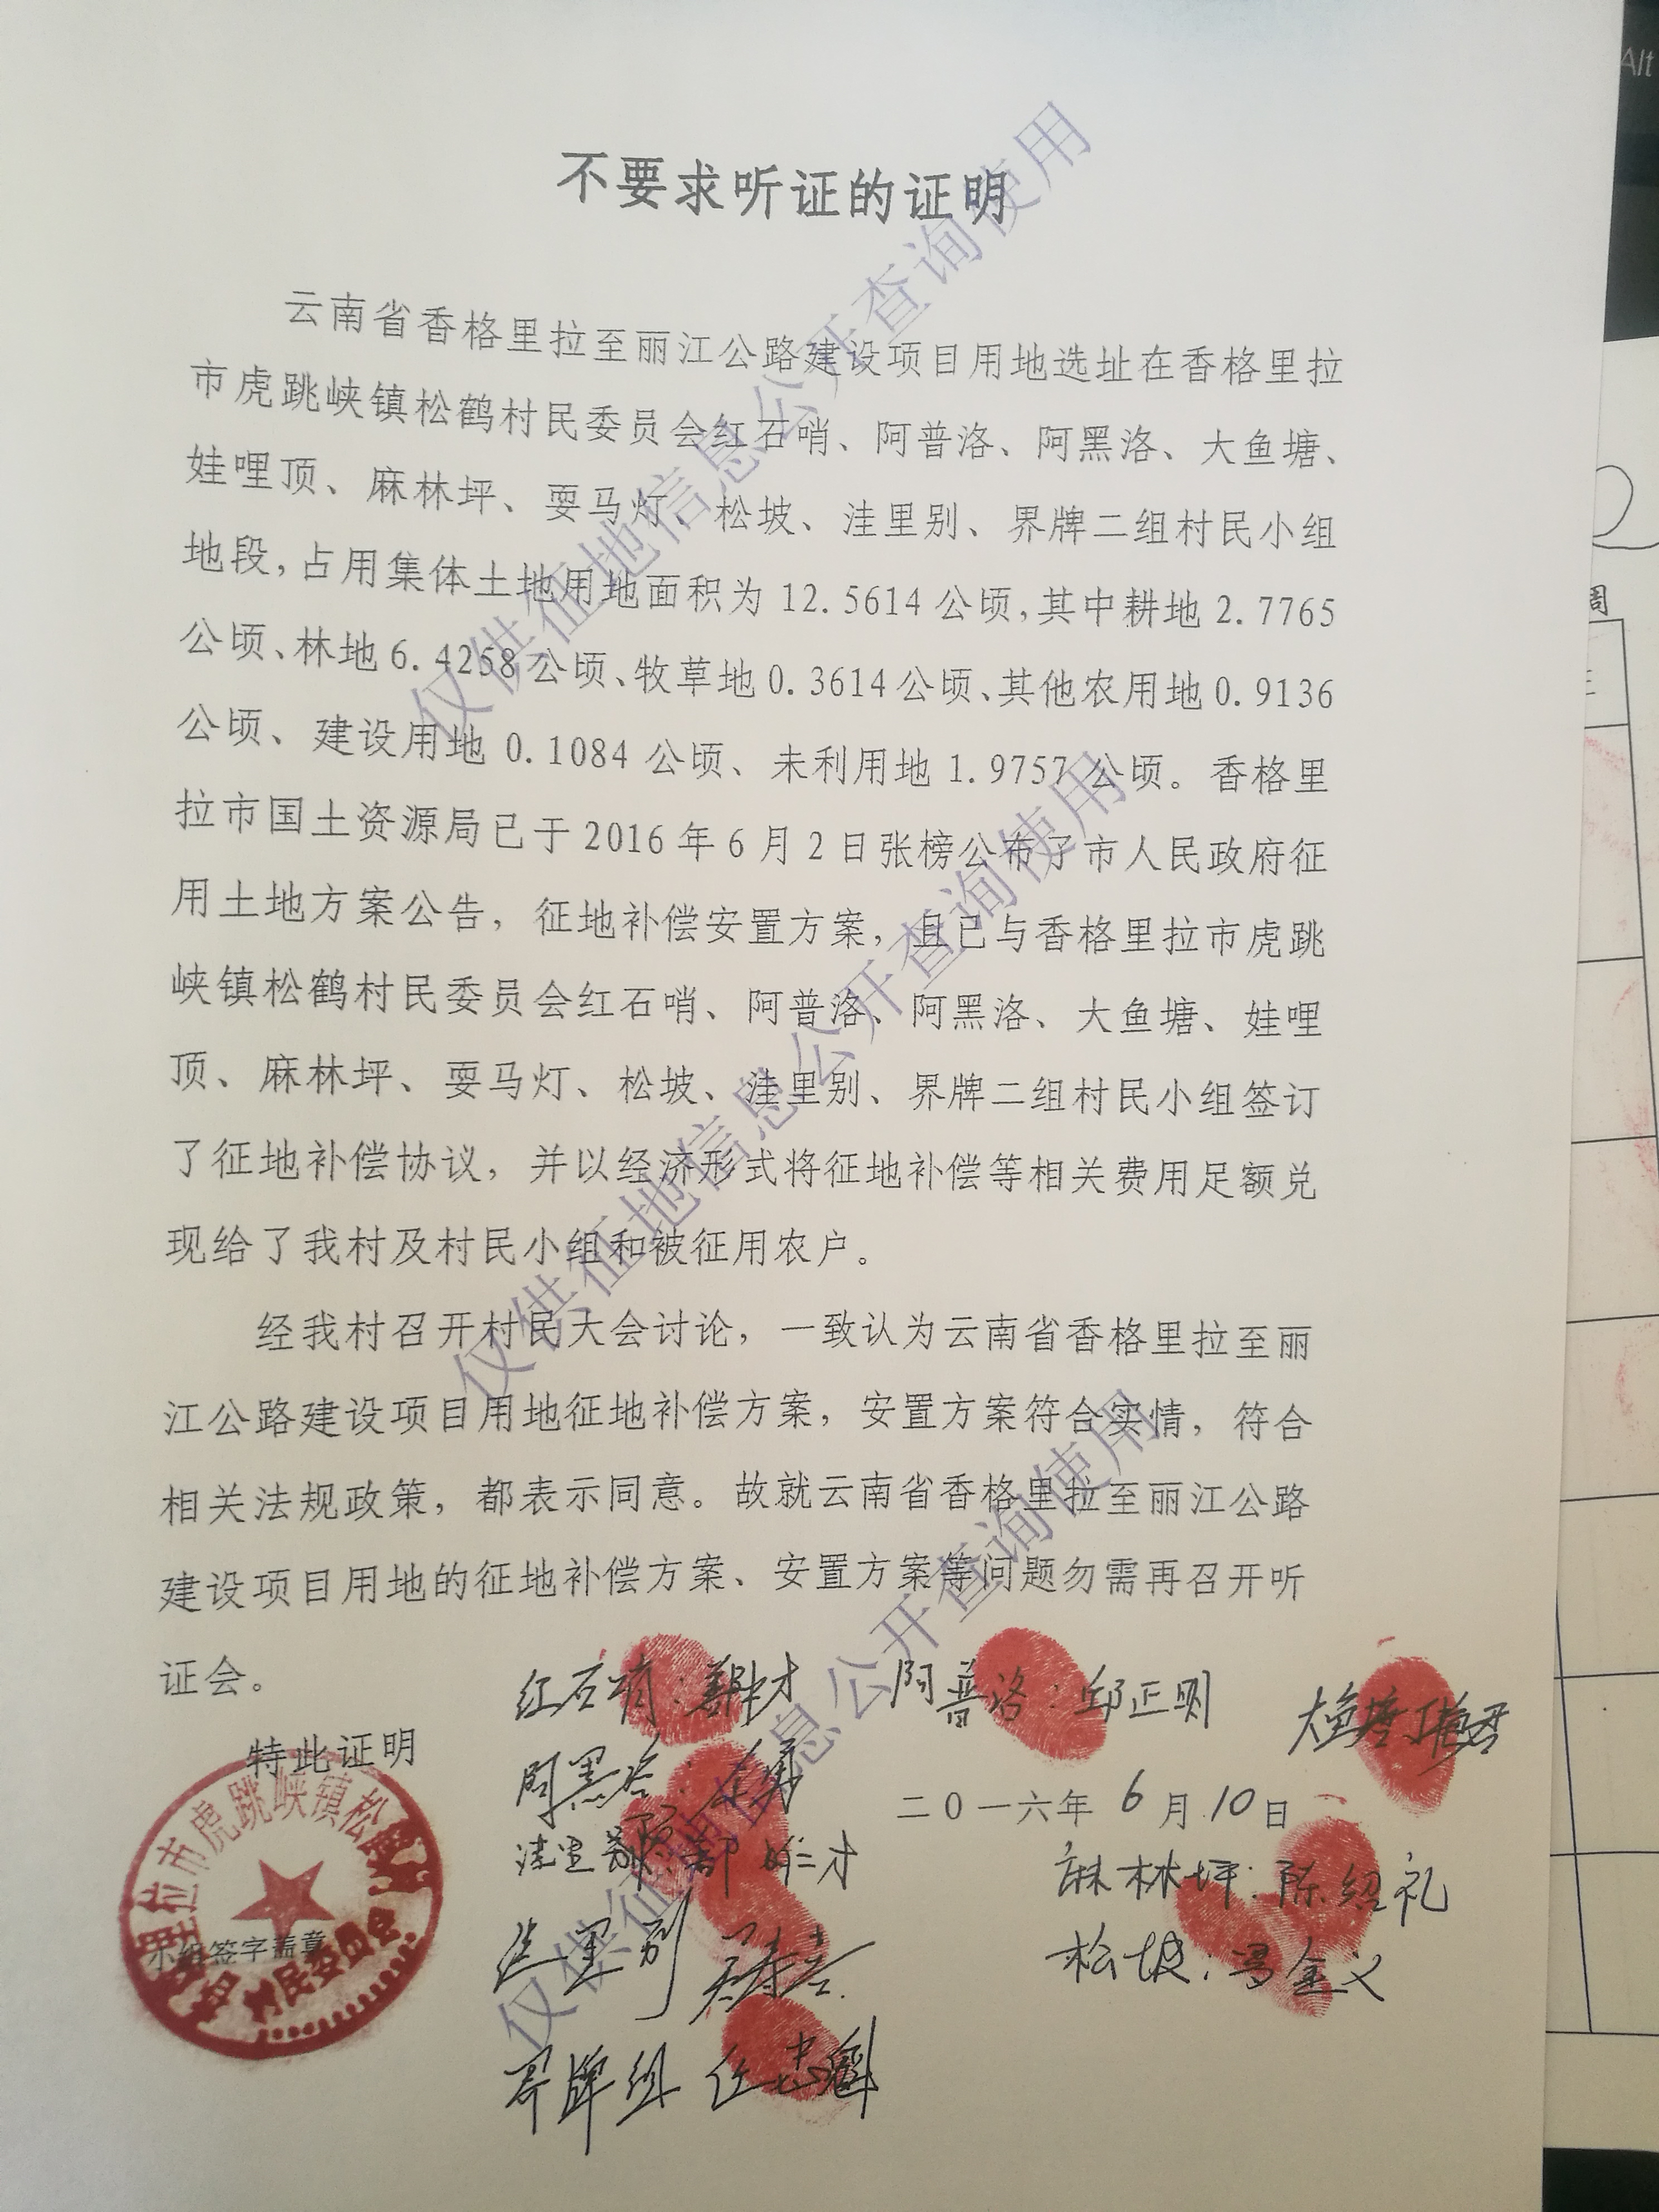 不要求听证的证明
云南省香格里拉至丽江公路建设项目用地选址在香格里拉
市虎跳峡镇松鹤村民委员会红石哨、阿普洛、阿黑洛、大鱼塘、
娃哩顶、麻林坪、耍马灯、松坡、洼里别、界牌二组村民小组
地段,占用集体土地用地面积为 12.5614 公顷,其中耕地 2.7765
公顷、林地 6.4258 公顷、牧草地 0.3614 公顷、其他农用地 0.9136
公顷、建设用地 0.1084 公顷、未利用地 1.9757 公顷。香格里
拉市国土资源局已于 2016 年 6 月 2 日张榜公布了市人民政府征
用土地方案公告，征地补偿安置方案，且已与香格里拉市虎跳
峡镇松鹤村民委员会红石哨、阿普洛、阿黑洛、大鱼塘、娃哩
顶、麻林坪、耍马灯、松坡、洼里别、界牌二组村民小组签订
了征地补偿协议，并以经济形式将征地补偿等相关费用足额兑
现给了我村及村民小组和被征用农户。
经我村召开村民大会讨论，一致认为云南省香格里拉至丽
江公路建设项目用地征地补偿方案，安置方案符合实情，符合
相关法规政策，都表示同意。故就云南省香格里拉至丽江公路
建设项目用地的征地补偿方案、安置方案等问题勿需再召开听
证会。
红石哨: 才
阿普洛: 邱正明
大鱼塘
特此证明
阿黑洛:
二〇一六年 6 月 10 日
麻林坪: 陈绍礼
小组签字盖章
洼里别
松坡: 冯金义
界牌组 任忠
里拉市虎跳峡镇松鹤
村民委员会
仅供征地信息公开查询使用
仅供征地信息公开查询使用
仅供征地信息公开查询使用
Alt